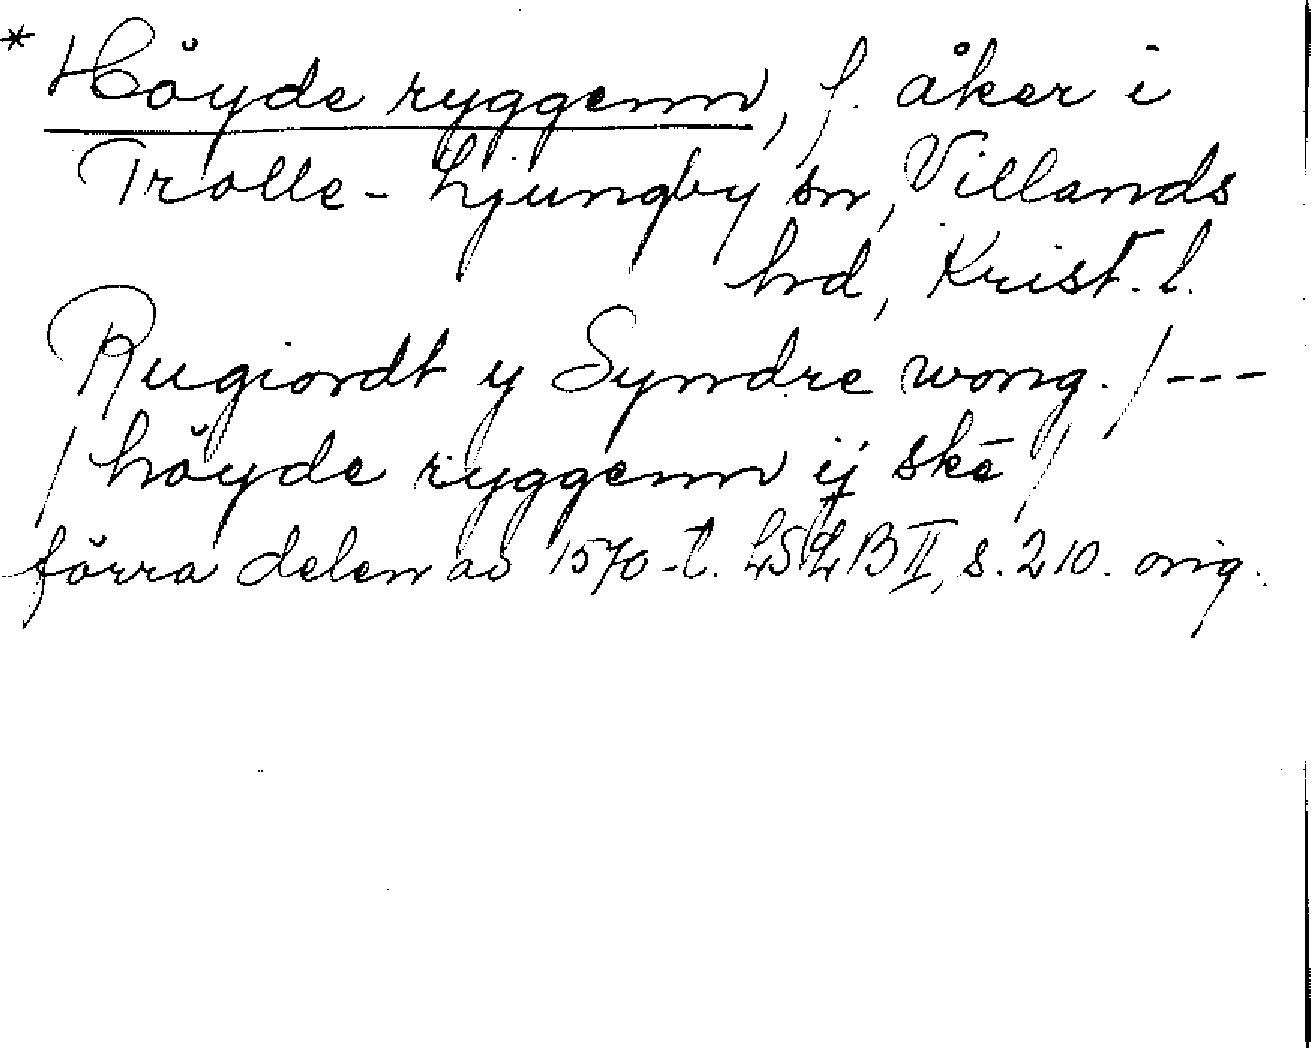 * Höyde ryggenn, f. åker i
Trolle-Ljungby sn, Villands
hd, Krist. l.
Rugiordt y Syndre wong. / ---
/ höyde ryggenn ij skē /
förra delen av 1570-t. LSLB II, s. 210. orig.